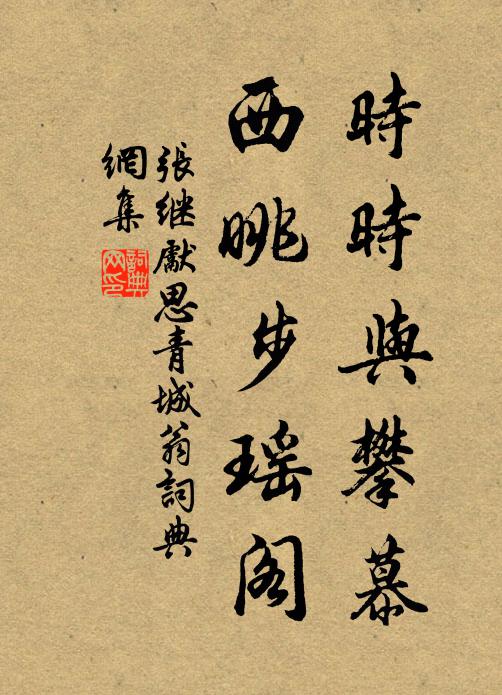 時時與攀慕
西眺步瑶阁
張继獻思青城翁詞典
網集
詞典
网印